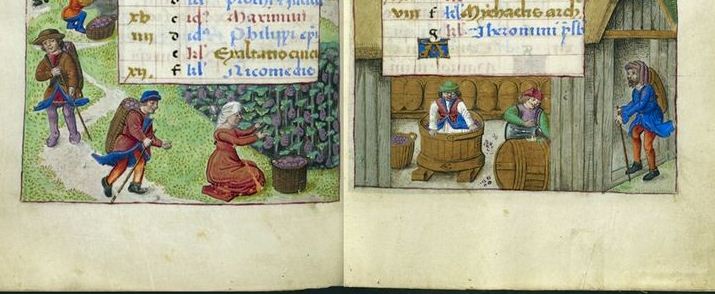 xv e id9 Maximini
iiii d id9 Philippi epi
e kl Exaltatio cruc
xij f kl Nicomedis
viii f kl Mychaelis arch
g kl Iheronimi pſb
A